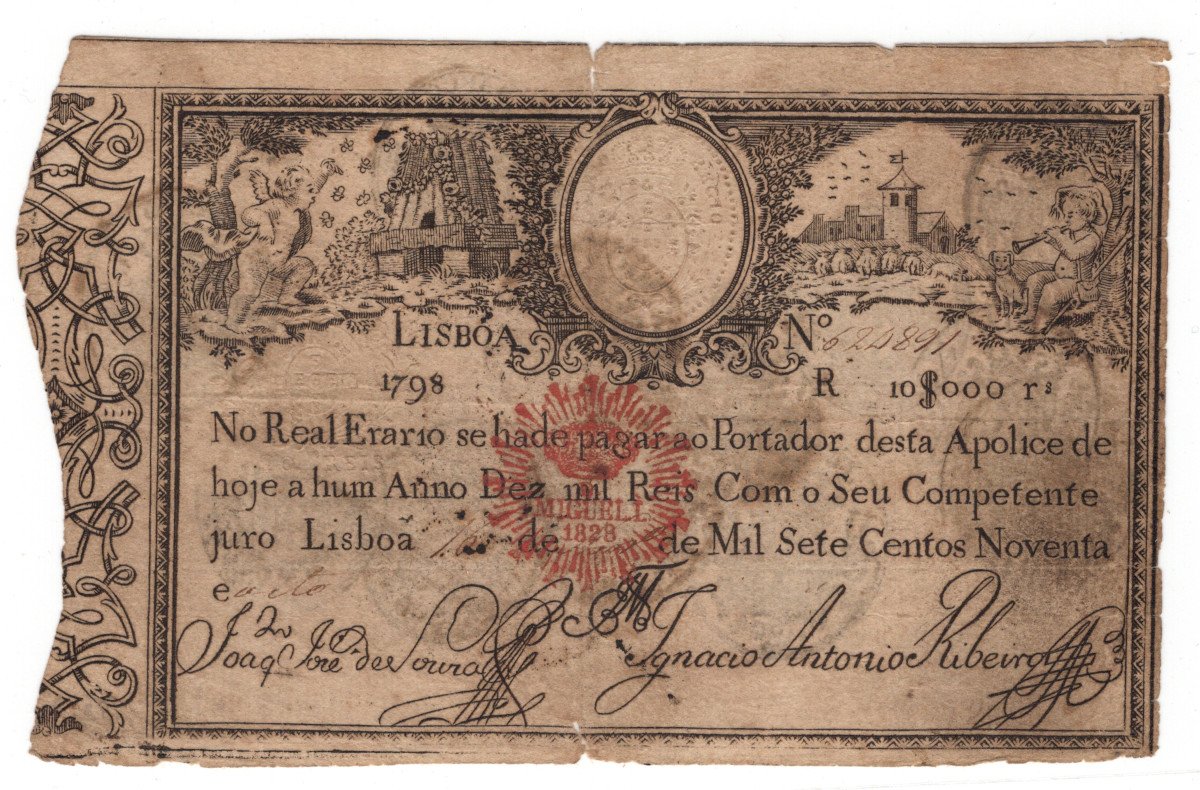 LISBOA Nº 624891
1798 R 10$000 rs
No Real Erario se hade pagar ao Portador desta Apolice de
hoje a hum Anno Dez mil Reis Com o Seu Competente
juro Lisboa de de Mil Sete Centos Noventa
e oito
MIGUEL I.
1828
Joaq José de Souza
Ignacio Antonio Ribeiro